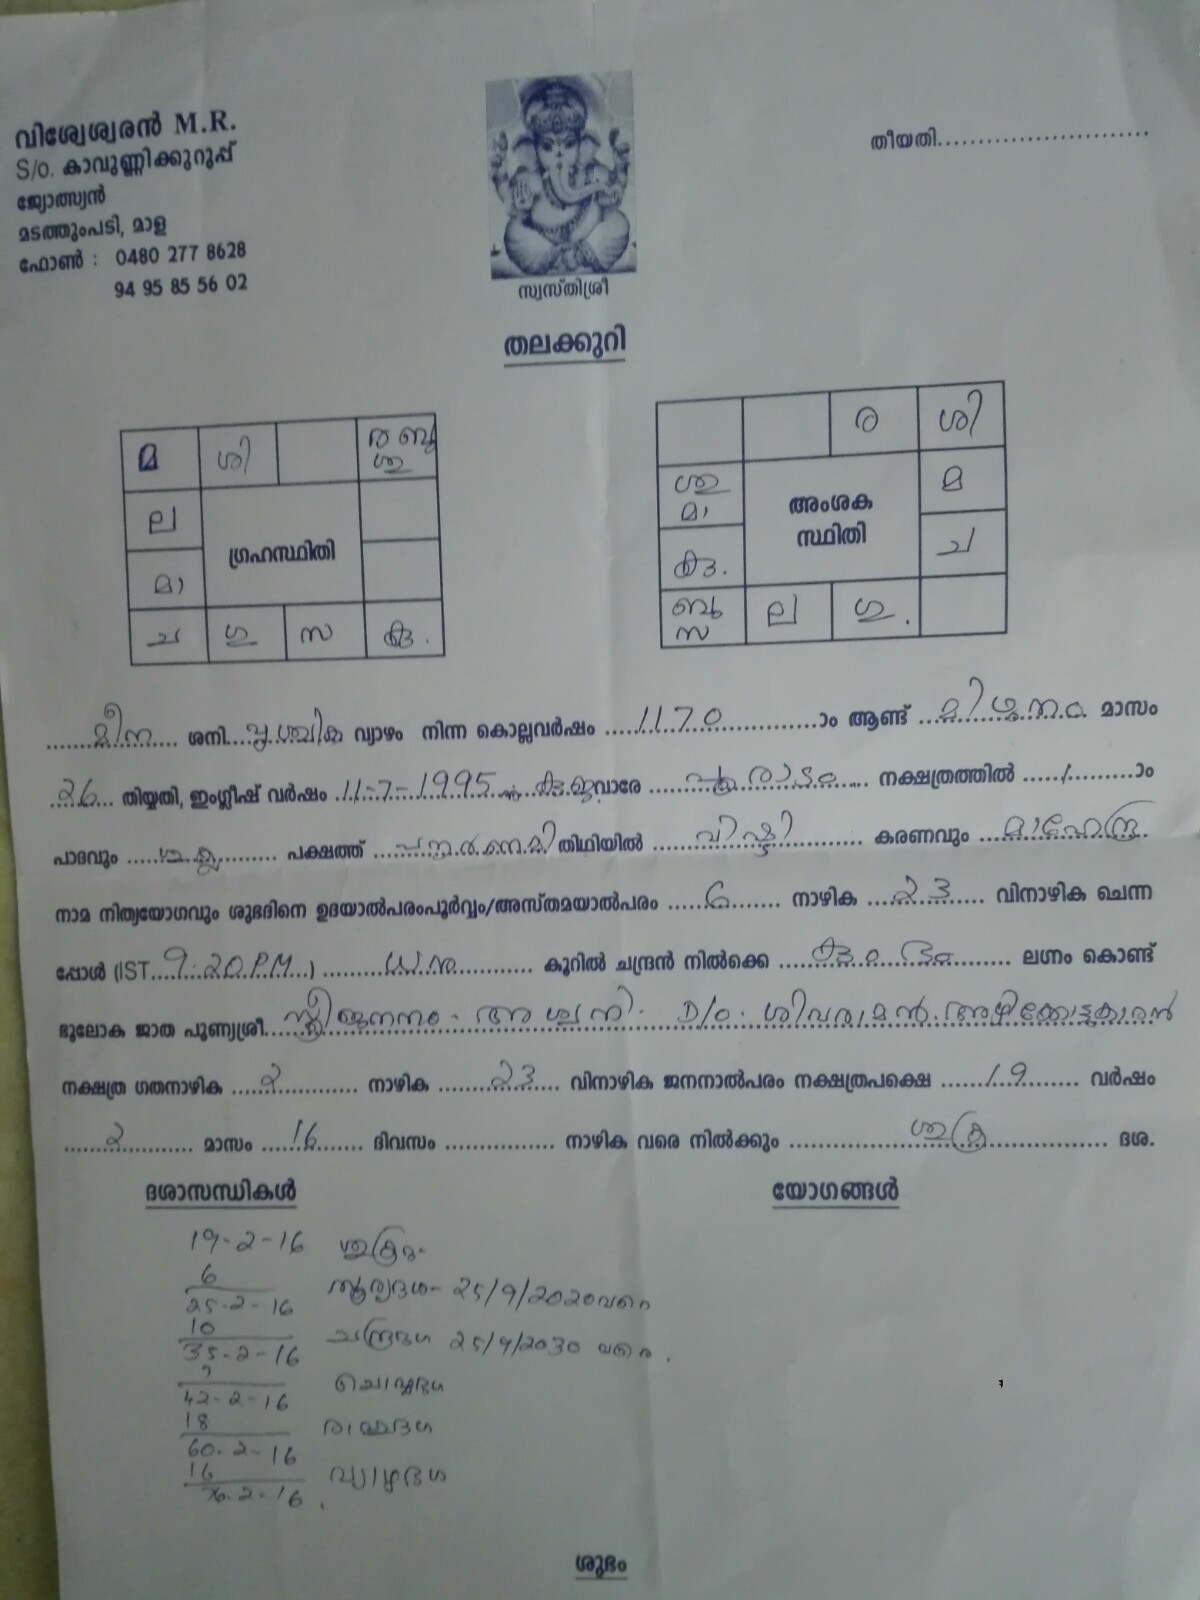 വിശ്വേശ്വരൻ M.R.
S/o. കാവുണ്ണിക്കുറുപ്പ്
ജ്യോത്സ്യൻ
മടത്തുംപടി, മാള
ഫോൺ : 0480 277 8628
94 95 85 56 02
തീയതി..........................
സ്വസ്തിശ്രീ
തലക്കുറി
മ ശി ര ബു
ശു
ല
ഗ്രഹസ്ഥിതി
മാ
ച ഗു സ കു.
ര ശി
ശു
മാ മ
അംശക
സ്ഥിതി
കു. ച
ബു
സ ല ഗു.
മീന ശനി വൃശ്ചിക വ്യാഴം നിന്ന കൊല്ലവർഷം 1170 ാം ആണ്ട് മിഥുനം മാസം
26 തിയ്യതി, ഇംഗ്ലീഷ് വർഷം 11-7-1995 കുജവാരേ പൂരാടം നക്ഷത്രത്തിൽ 1 ാം
പാദവും ശുക്ല പക്ഷത്ത് തിഥിയിൽ വിഷ്ടി കരണവും മാഹേന്ദ്ര
നാമ നിത്യയോഗവും ശുഭദിനെ ഉദയാൽപരംപൂർവ്വം/അസ്തമയാൽപരം 6 നാഴിക 23 വിനാഴിക ചെന്ന
പ്പോൾ (IST 9.20 P.M.) ധനു കൂറിൽ ചന്ദ്രൻ നിൽക്കെ കുംഭം ലഗ്നം കൊണ്ട്
ഭൂലോക ജാത പുണ്യശ്രീ സ്ത്രീജനനം - അശ്വനി. D/o. ശിവരാമൻ. അഴിക്കോട്ടുകാരൻ
നക്ഷത്ര ഗതനാഴിക 2 നാഴിക 23 വിനാഴിക ജനനാൽപരം നക്ഷത്രപക്ഷെ 19 വർഷം
2 മാസം 16 ദിവസം .............. നാഴിക വരെ നിൽക്കും ശുക്ര ദശ.
ദശാസന്ധികൾ
യോഗങ്ങൾ
19-2-16
6
25-2-16 സൂര്യദശ - 25/9/2020 വരെ
10
35-2-16 ചന്ദ്രദശ 25/9/2030 വരെ.
7
42-2-16 ചൊവ്വദശ
18
60-2-16 രാഹുദശ
16
76-2-16. വ്യാഴദശ
ശുഭം